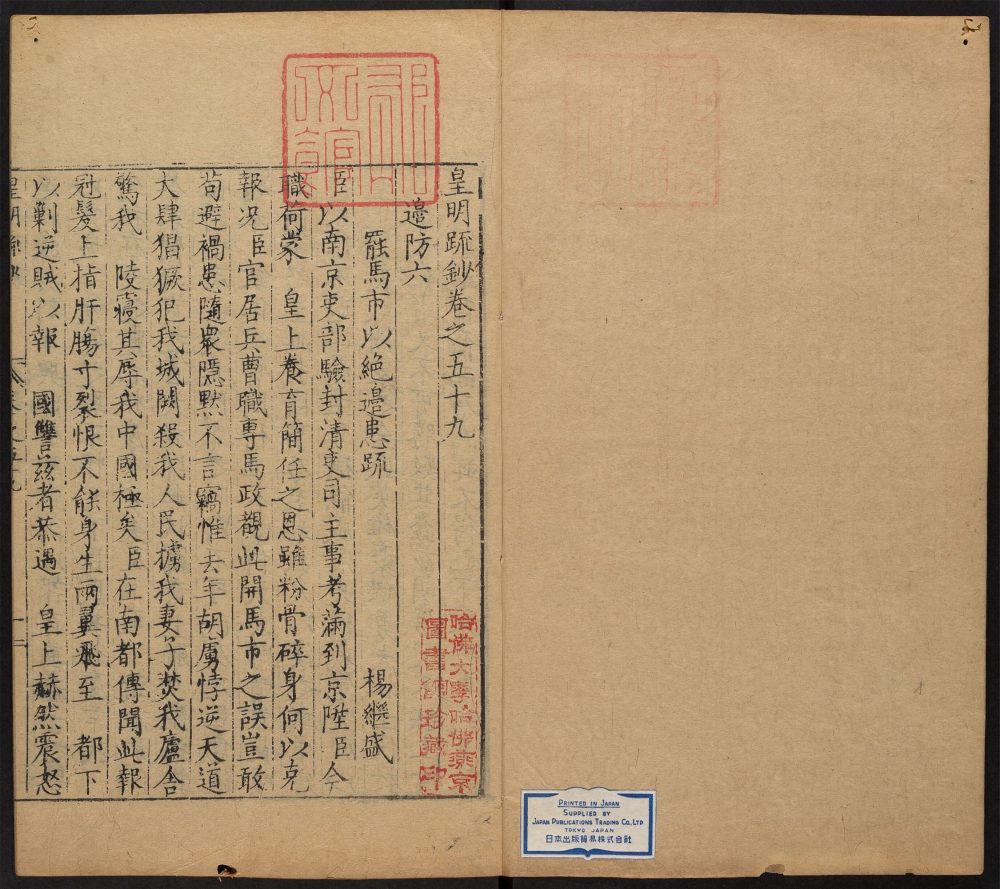 皇明疏鈔卷之五十九
邉防六
罷馬市以絶邉患疏
楊繼盛
臣以南京吏部驗封清吏司主事考滿到京陞臣今
職荷蒙 皇上養育簡任之恩雖粉骨碎身何以克
報况臣官居兵曹職專馬政觀此開馬市之誤豈敢
苟避禍患隨衆隱默不言竊惟去年胡虜悖逆天道
大肆猖獗犯我城闕殺我人民擄我妻子焚我廬舎
驚我 陵寢其辱我中國極矣臣在南都傳聞此報
冠髮上指肝膓寸裂恨不能身生兩翼飛至 都下
以剿逆賊以報 國讐兹者恭遇 皇上赫然震怒
皇明疏鈔
卷之五十九
一
哈佛大學哈佛燕京
圖書館珍藏印
PRINTED IN JAPAN
SUPPLIED BY
JAPAN PUBLICATIONS TRADING CO., LTD
TOKYO JAPAN
日本出版貿易株式会社